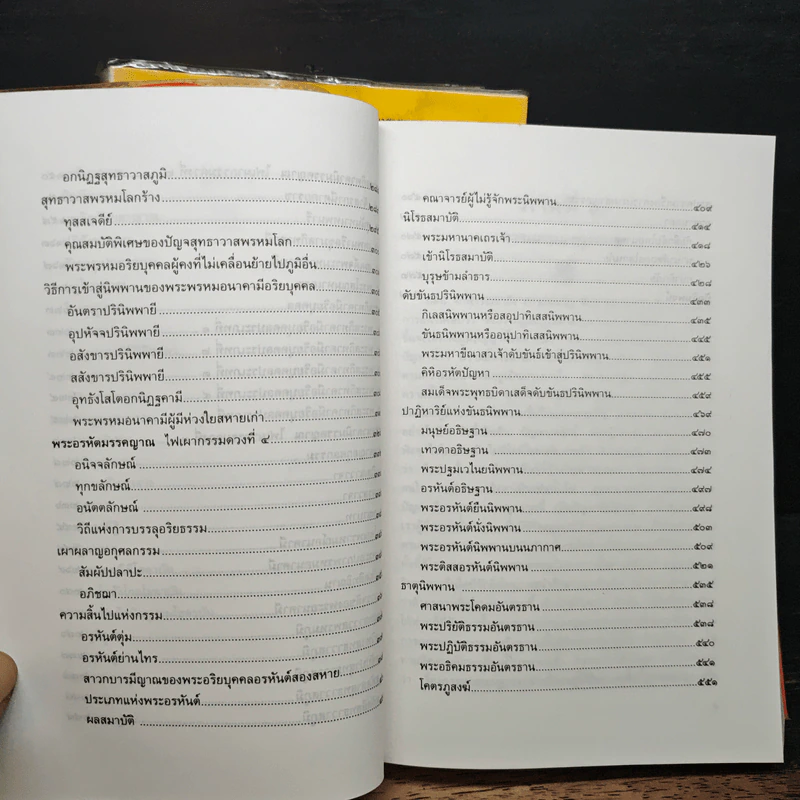 อกนิฏฐสุทธาวาสภูมิ
สุทธาวาสพรหมโลกร้าง
ทุสสเจดีย์
คุณสมบัติพิเศษของปัญจสุทธาวาสพรหมโลก
พระพรหมอริยบุคคลผู้คงที่ไม่เคลื่อนย้ายไปภูมิอื่น
วิธีการเข้าสู่นิพพานของพระพรหมอนาคามีอริยบุคคล
อันตราปรินิพพายี
อุปหัจจปรินิพพายี
อสังขารปรินิพพายี
สสังขารปรินิพพายี
อุทธังโสโตอกนิฏฐคามี
พระพรหมอนาคามีผู้มีห่วงใยสหายเก่า
พระอรหัตมรรคญาณ ไฟเผากรรมดวงที่ ๔
อนิจจลักษณ์
ทุกขลักษณ์
อนัตตลักษณ์
วิถีแห่งการบรรลุอริยธรรม
เผาผลาญอกุศลกรรม
สัมผัปปลาปะ
อภิชฌา
ความสิ้นไปแห่งกรรม
อรหันต์ตุ่ม
อรหันต์ย่านไทร
สาวกบารมีญาณของพระอริยบุคคลอรหันต์สองสหาย
ประเภทแห่งพระอรหันต์
ผลสมาบัติ
คณาจารย์ผู้ไม่รู้จักพระนิพพาน ๔๐๙
นิโรธสมาบัติ ๔๑๕
พระมหานาคเถรเจ้า ๔๑๘
เข้านิโรธสมาบัติ ๔๒๖
บุรุษข้ามลำธาร ๔๒๘
ดับขันธปรินิพพาน ๔๓๓
กิเลสนิพพานหรือสอุปาทิเสสนิพพาน ๔๓๕
ขันธนิพพานหรืออนุปาทิเสสนิพพาน ๔๔๕
พระมหาขีณาสวเจ้าดับขันธ์เข้าสู่ปรินิพพาน ๔๕๑
คิหิอรหัตปัญหา ๔๕๕
สมเด็จพระพุทธบิดาเสด็จดับขันธปรินิพพาน ๔๕๙
ปาฏิหาริย์แห่งขันธนิพพาน ๔๖๙
มนุษย์อธิษฐาน ๔๗๐
เทวดาอธิษฐาน ๔๗๓
พระปฐมเวไนยนิพพาน ๔๗๔
อรหันต์อธิษฐาน ๔๙๗
พระอรหันต์ยืนนิพพาน ๔๙๘
พระอรหันต์นั่งนิพพาน ๕๐๓
พระอรหันต์นิพพานบนนภากาศ ๕๐๙
พระติสสอรหันต์นิพพาน ๕๒๑
ธาตุนิพพาน ๕๓๕
ศาสนาพระโคดมอันตรธาน ๕๓๘
พระปริยัติธรรมอันตรธาน ๕๓๘
พระปฏิบัติธรรมอันตรธาน ๕๔๐
พระอธิคมธรรมอันตรธาน ๕๔๑
โคตรภูสงฆ์ ๕๕๑